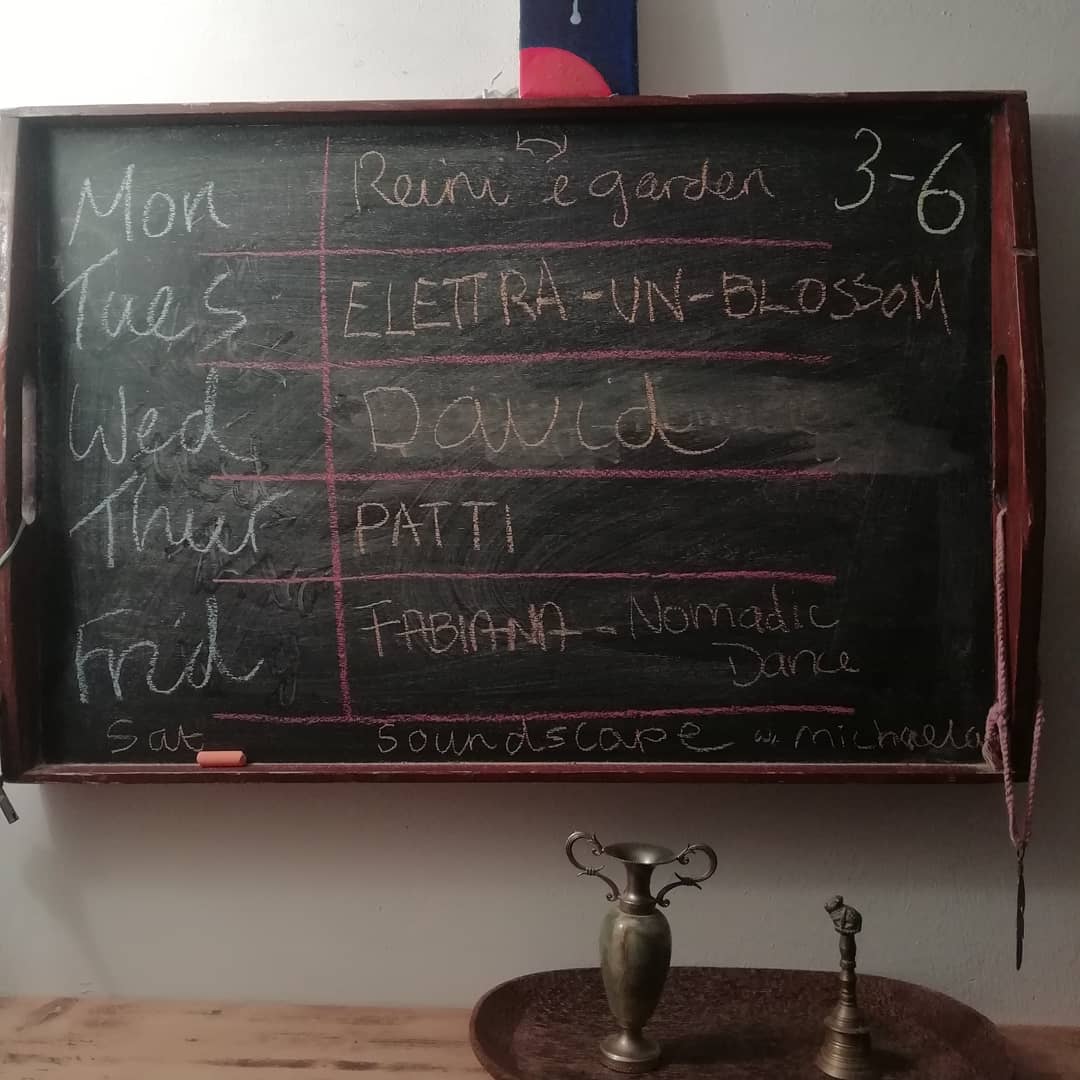 Mon Reini e garden 3-6
Tues ELETTRA-UN-BLOSSOM
Wed David
Thur PATTI
Frid FABIANA - Nomadic
Dance
Sat Soundscape w. michaela